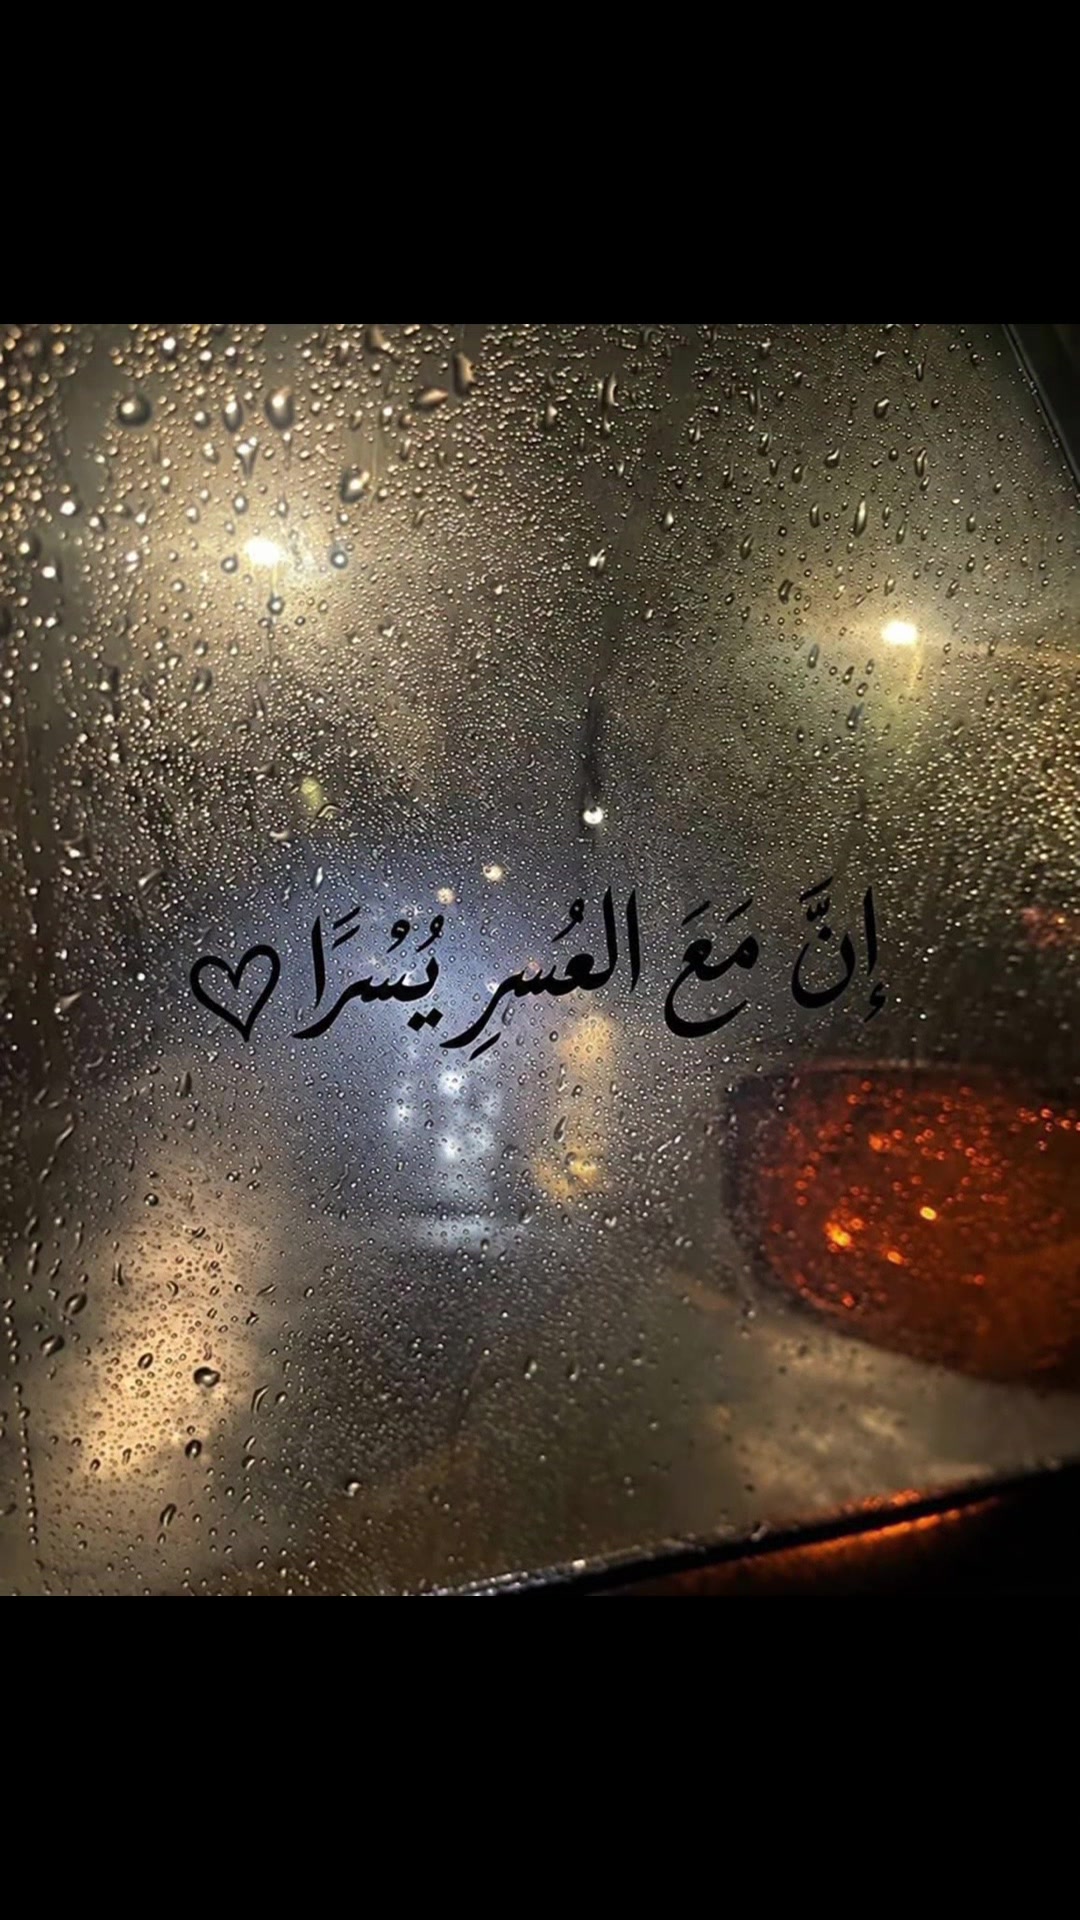 إنَّ مَعَ العُسرِ يُسْرَا ♡